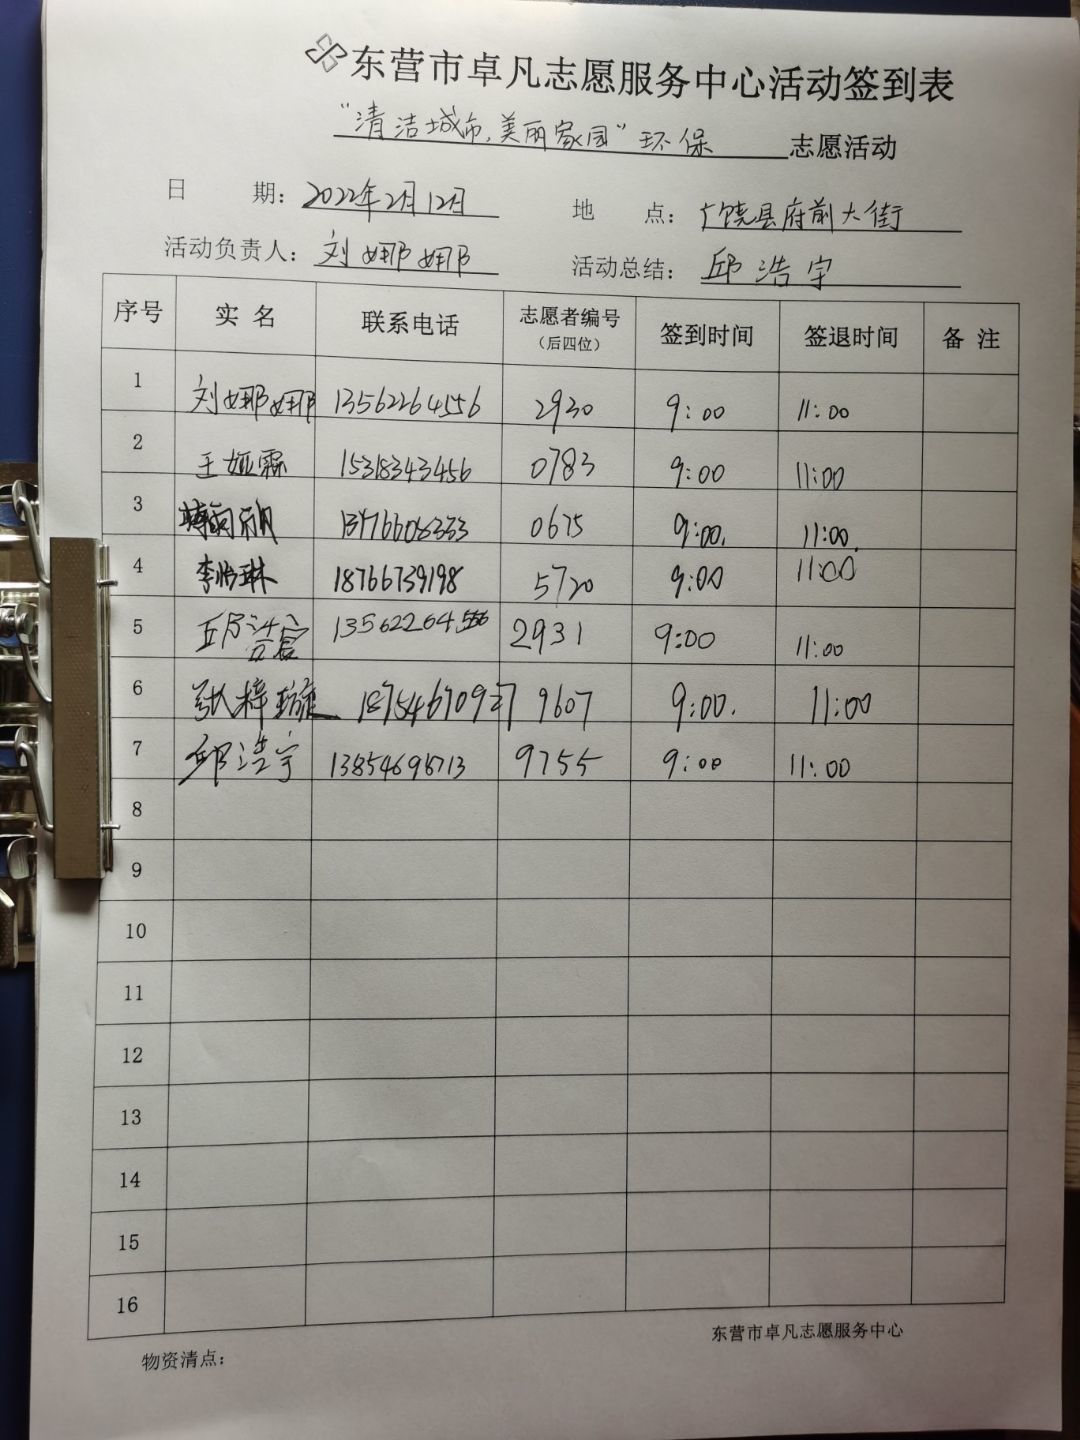 东营市卓凡志愿服务中心活动签到表
“清洁城市、美丽家园”环保 志愿活动
日 期：2022年2月12日 地 点：广饶县府前大街
活动负责人：刘娜娜 活动总结：邱浩宇
序号 实名 联系电话 志愿者编号（后四位） 签到时间 签退时间 备注
1 刘娜娜 13562264556 2930 9:00 11:00
2 王娅霖 15318343456 0783 9:00 11:00
3 0675 9:00. 11:00.
4 李怡琳 18766739198 5720 9:00 11:00
5 邱浩宸 13562264556 2931 9:00 11:00
6 张梓璇 9607 9:00. 11:00
7 邱浩宇 13854698713 9755 9:00 11:00
8
9
10
11
12
13
14
15
16
东营市卓凡志愿服务中心
物资清点：